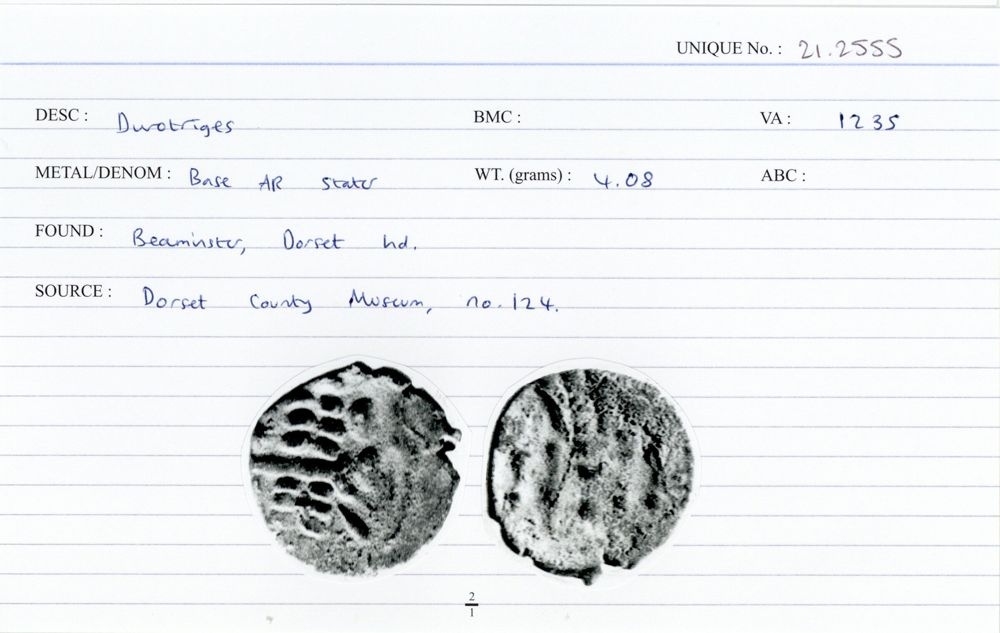 UNIQUE No. : 21.2555
DESC : Durotriges BMC : VA : 1235
METAL/DENOM : Base AR stater WT. (grams) : 4.08 ABC :
FOUND : Beaminster, Dorset hd.
SOURCE : Dorset County Museum, no. 124.
2
1